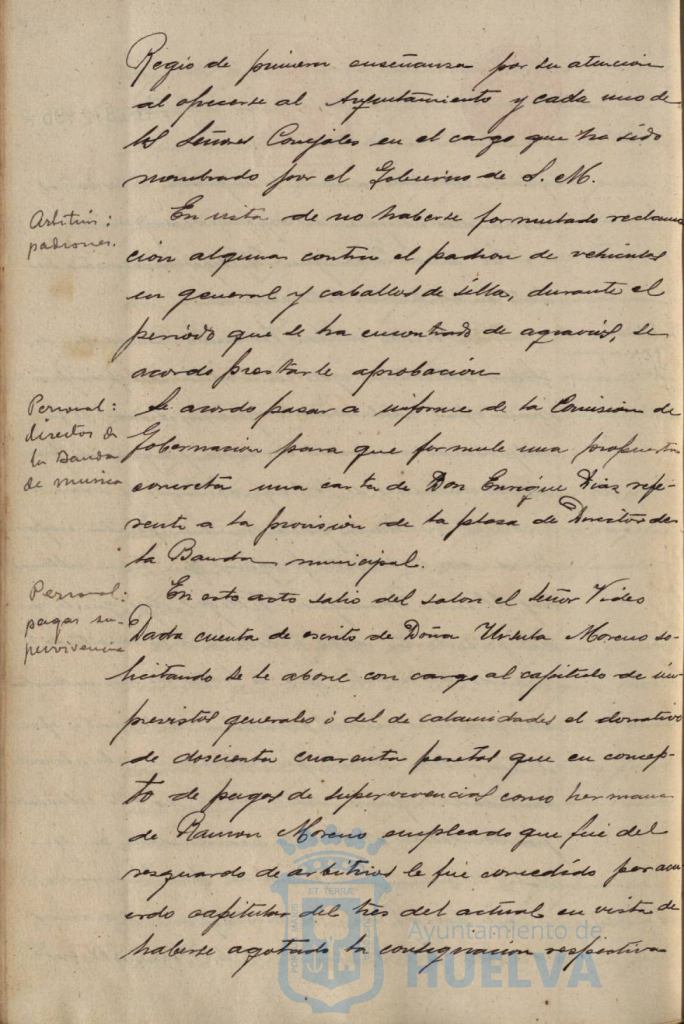 Regio de primera enseñanza por su atencion
al ofrecerse al Ayuntamiento y cada uno de
los Señores Concejales en el cargo que ha sido
nombrado por el Gobierno de S. M.
Arbitrios:
padrones.
En vista de no haberse formulado reclama
ción alguna contra el padron de vehiculos
en general y caballos de silla, durante el
periodo que se ha encontrado de agravios, se
acordo prestarle aprobación
Personal:
director de
la Banda
de musica
Se acordo pasar a informe de la Comisión de
Gobernacion para que formule una propuesta
concreta una carta de Don Enrique Diaz refe-
rente a la provisión de la plaza de Director de
la Banda municipal.
Personal:
pagas su-
pervivencia
En este acto salio del salon el Señor Video
Dada cuenta de escrito de Doña Ursula Moreno so-
licitando se le abone con cargo al capitulo de im
previstos generales ó del de calamidades el donativo
de doscienta cuarenta pesetas que en concep-
to de pagas de supervivencias como hermana
de Ramon Moreno empleado que fué del
resguardo de arbitrios le fue concedido por acu
erdo capitular del tres del actual en vista de
haberse agotado la consignacion respectiva
Ayuntamiento de
HUELVA